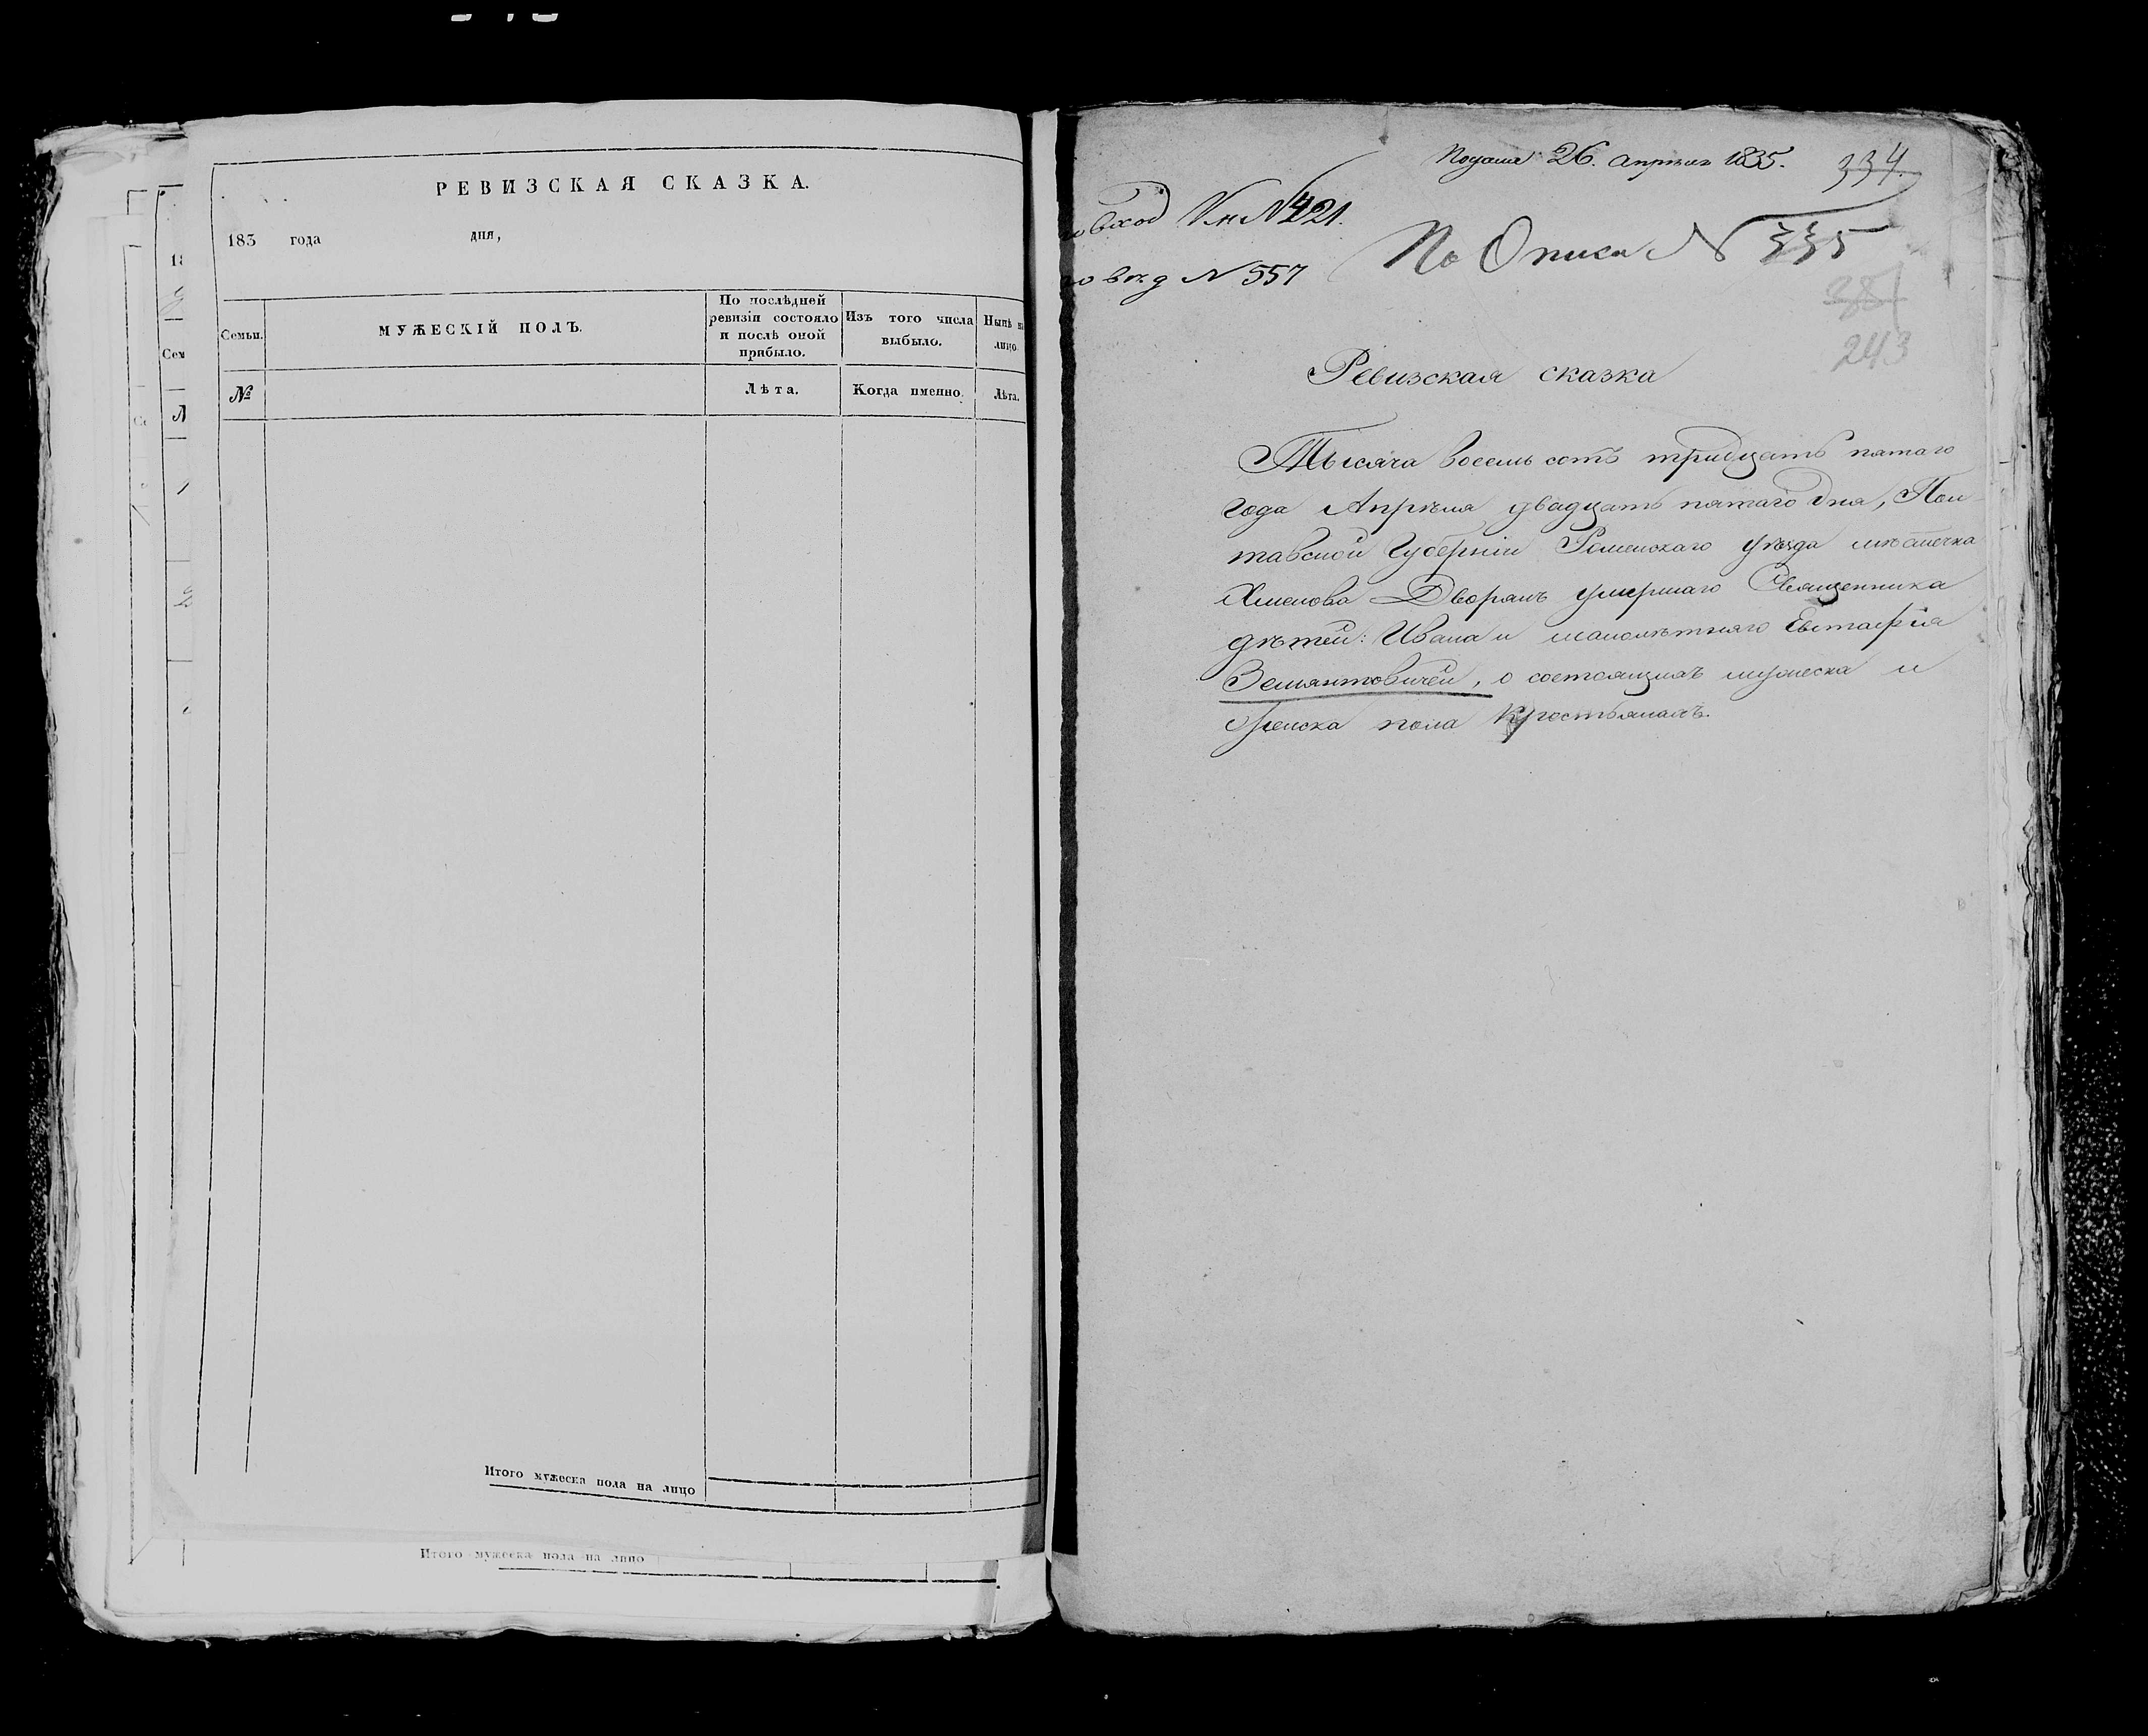 РЕВИЗСКАЯ СКАЗКА.
183 года дня,
Семьи.
МУЖЕСКІЙ ПОЛЪ.
По послѣдней
ревизіи состояло
и послѣ оной
прибыло.
Изъ того числа
выбыло.
Нынѣ на
лицо.
№
Лѣта.
Когда именно.
Лѣта.
Итого мужеска пола на лицо
Итого мужеска пола на лицо
Подана 26. апрѣля 1835.
334.
вход № 421.
По Описи № 335
№ 557
381
243
Ревизская сказка
Тысяча восемь сотъ тридцать пятаго
года Апрѣля двадцать пятаго дня, Пол
тавской Губерніи Роменскаго уѣзда мѣстечка
Хмелова Дворянъ умершаго Священника
дѣтей: Ивана и малолѣтняго Евстафія
Земянтовичей, о состоящихъ мужеска и
женска пола крестьянахъ.